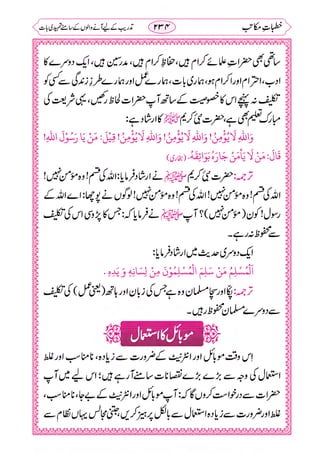 خطباتِ مکاتب ۲۳۴ تدریب کے لیے آنے والوں کے سامنے تمہیدی بات
ساتھی بھی حضراتِ علمائے کرام ہیں، حفاظِ کرام ہیں، مدرسین ہیں، ایک دوسرے کا
ادب، احترام اور اکرام ہو، ہماری بات، ہمارے عمل اور ہمارے طرزِ زندگی سے کسی کو
تکلیف نہ پہنچے اس کا خصوصیت کے ساتھ آپ حضرات لحاظ رکھیں، یہی شریعت کی
مبارک تعلیم بھی ہے، حضرت نبیٔ کریم ﷺ کا ارشاد ہے:
وَاللهِ لَا يُؤْمِنُ! وَاللهِ لَا يُؤْمِنُ! وَاللهِ لَا يُؤْمِنُ! قِيْلَ: مَنْ يَا رَسُوْلَ اللهِ!
قَالَ: مَنْ لَا يَأْمَنُ جَارُهُ بَوَائِقَهُ. (بخاری)
ترجمہ: حضرت نبیٔ کریم ﷺ نے ارشاد فرمایا: اللہ کی قسم! وہ مؤمن نہیں!
اللہ کی قسم! وہ مؤمن نہیں! اللہ کی قسم! وہ مؤمن نہیں! لوگوں نے پوچھا: اے اللہ کے
رسول! کون (مؤمن نہیں)؟ آپ ﷺ نے فرمایا کہ: جس کا پڑوسی اس کی تکلیف
سے محفوظ نہ رہے۔
ایک دوسری حدیث میں ارشاد فرمایا:
اَلْمُسْلِمُ مَنْ سَلِمَ الْمُسْلِمُوْنَ مِنْ لِسَانِهٖ وَ يَدِهٖ.
ترجمہ: پکّا اور سچّا مسلمان وہ ہے جس کی زبان اور ہاتھ (یعنی عمل) کی تکلیف
سے دوسرے مسلمان محفوظ رہیں۔
موبائل کا استعمال
اِس وقت موبائل اور انٹرنیٹ کے ضرورت سے زیادہ، نامناسب اور غلط
استعمال کی وجہ سے بڑے بڑے نقصانات سامنے آرہے ہیں؛ اس لیے میں آپ
حضرات سے درخواست کروں گا کہ: آپ موبائل اور انٹرنیٹ کے بے جا، نامناسب،
غلط اور ضرورت سے زیادہ استعمال سے بالکل پرہیز کریں، جتنی مجالس یہاں نظام سے